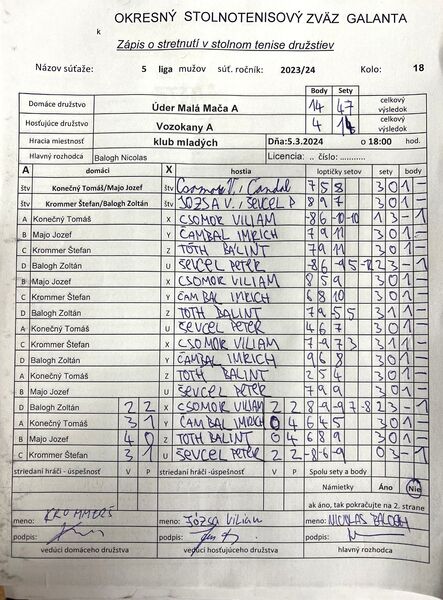 OKRESNÝ STOLNOTENISOVÝ ZVÄZ GALANTA
k
Zápis o stretnutí v stolnom tenise družstiev
Názov súťaže: 5 liga mužov súť. ročník: 2023/24 Kolo: 18
Body Sety
Domáce družstvo Úder Malá Mača A 14 47 celkový výsledok
Hosťujúce družstvo Vozokany A 4 celkový výsledok
Hracia miestnosť klub mladých Dňa:5.3.2024 o 18:00 hod.
Hlavný rozhodca Balogh Nicolas Licencia: .. číslo: ...........
A domáci X hostia loptičky setov sety body
štv Konečný Tomáš/Majo Jozef 7 5 8 3 0 1 –
štv Krommer Štefan/Balogh Zoltán JÓZSA V. / ŠEVCEL P 8 9 7 3 0 1 –
A Konečný Tomáš X CSOMOR VILIAM -8 6 -10 -10 1 3 – 1
B Majo Jozef Y ČAMBAL IMRICH 7 9 11 3 0 1 –
C Krommer Štefan Z TÓTH BÁLINT 7 9 11 3 0 1 –
D Balogh Zoltán U ŠEVCEL PETER 2 3 – 1
B Majo Jozef X CSOMOR VILIAM 8 5 9 3 0 1 –
C Krommer Štefan Y ČAMBAL IMRICH 6 8 10 3 0 1 –
D Balogh Zoltán Z TOTH BALINT 7 9 -5 5 3 1 1 –
A Konečný Tomáš U ŠEVCEL PETER 4 6 7 3 0 1 –
C Krommer Štefan X CSOMOR VILIAM 7 -9 7 3 3 1 1 –
D Balogh Zoltán Y ČAMBAL IMRICH 9 6 8 3 0 1 –
A Konečný Tomáš Z TOTH BALINT 2 5 4 3 0 1 –
B Majo Jozef U ŠEVCEL PETER 7 9 9 3 0 1 –
D Balogh Zoltán 2 2 X CSOMOR VILIAM 2 2 8 -9 -9 7 -8 2 3 – 1
A Konečný Tomáš 3 1 Y ČAMBAL IMRICH 0 4 6 4 5 3 0 1 –
B Majo Jozef 4 0 Z TOTH BALINT 0 4 6 8 9 3 0 1 –
C Krommer Štefan 3 1 U ŠEVCEL PETER 2 2 -8 -6 -9 0 3 – 1
striedaní hráči - úspešnosť V P striedaní hráči - úspešnosť V P Spolu sety a body
Námietky Áno Nie
ak áno, tak pokračujte na 2. strane
meno: KROMMER Š meno: Józsa Vilián meno: NICOLAS BALOGH
podpis: podpis: podpis:
vedúci domáceho družstva vedúci hosťujúceho družstva hlavný rozhodca